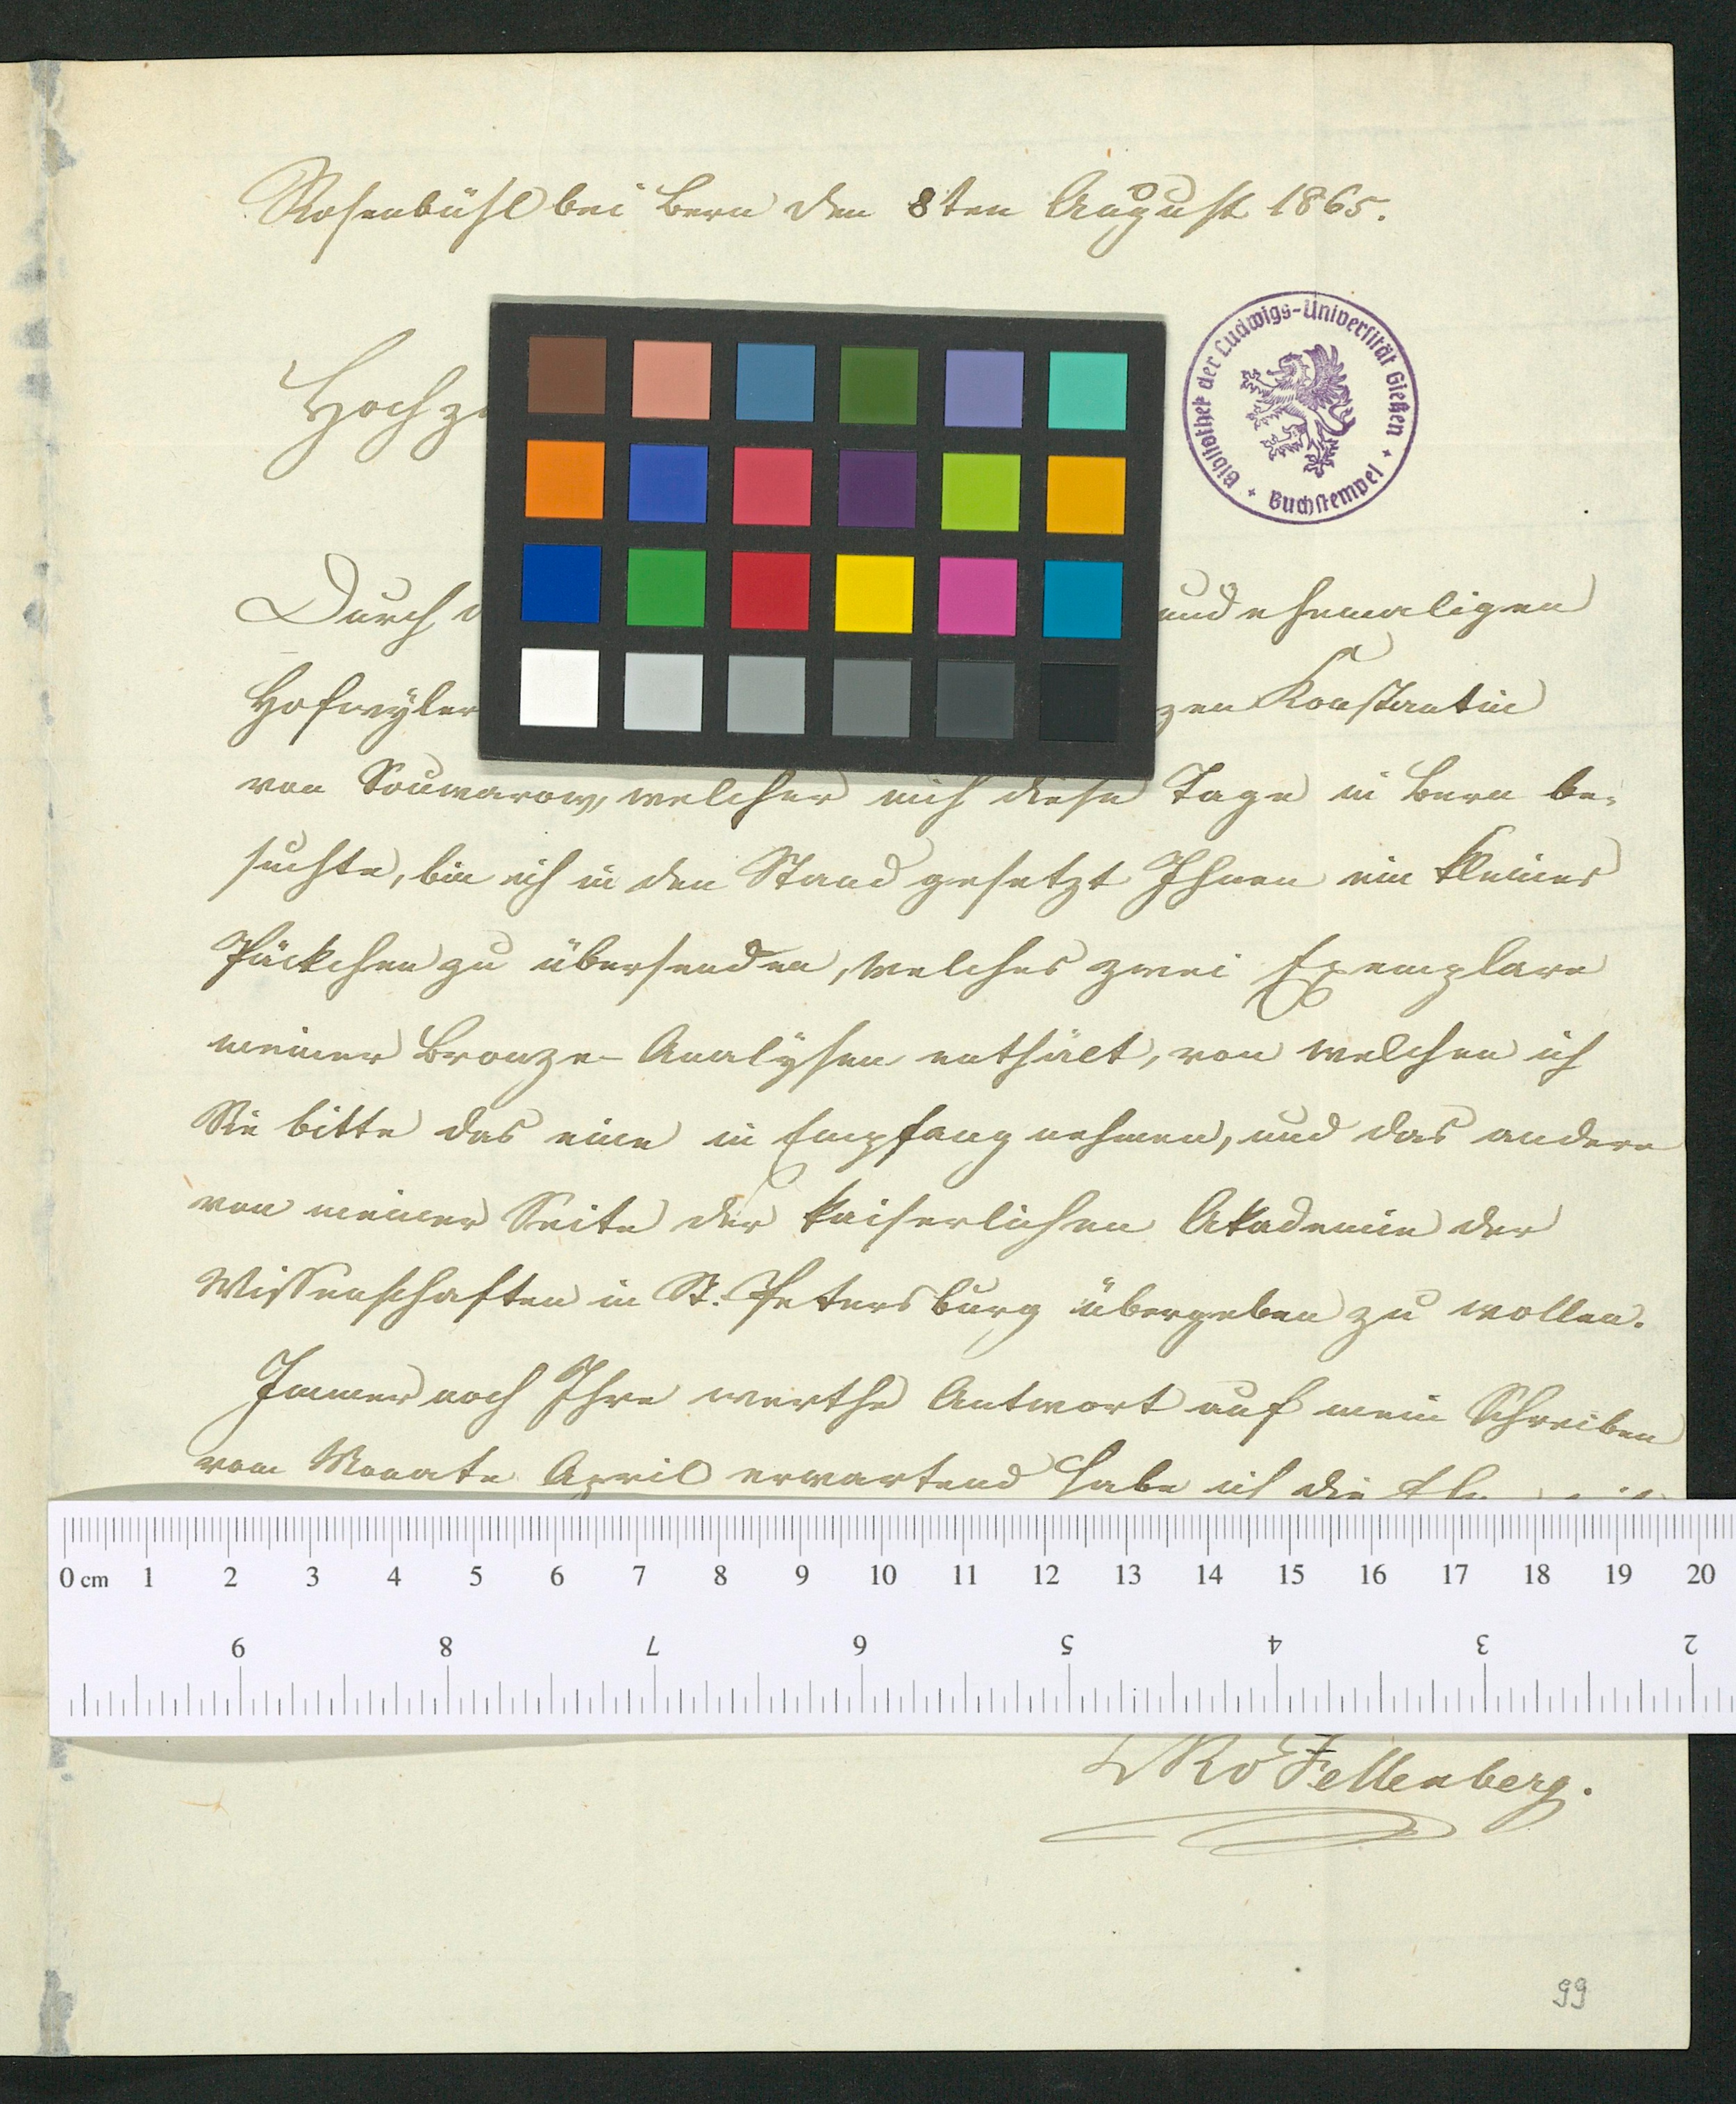 Rosenbühl bei Bern den 8ten August 1865.
Bibliothek der Ludwigs-Universität Gießen + Buchstempel +
Hochz
Durch und ehemaligen
Hofwyler zen Konstantin
von Souwarow, welcher mich diese Tage in Bern be-
suchte, bin ich in den Stand gesetzt Ihnen ein kleines
Päckchen zu übersenden, welches zwei Exemplare
meiner Bronze-Analÿsen enthält, von welchen ich
Sie bitte das eine in Empfang nehmen, und das andere
von meiner Seite der kaiserlichen Akademie der
Wissenschaften in St. Petersburg übergeben zu wollen.
Immer noch Ihre werthe Antwort auf mein Schreiben
vom Monate April erwartend habe ich die
0 cm 1 2 3 4 5 6 7 8 9 10 11 12 13 14 15 16 17 18 19 20
9 8 7 6 5 4 3 2
Fellenberg.
99